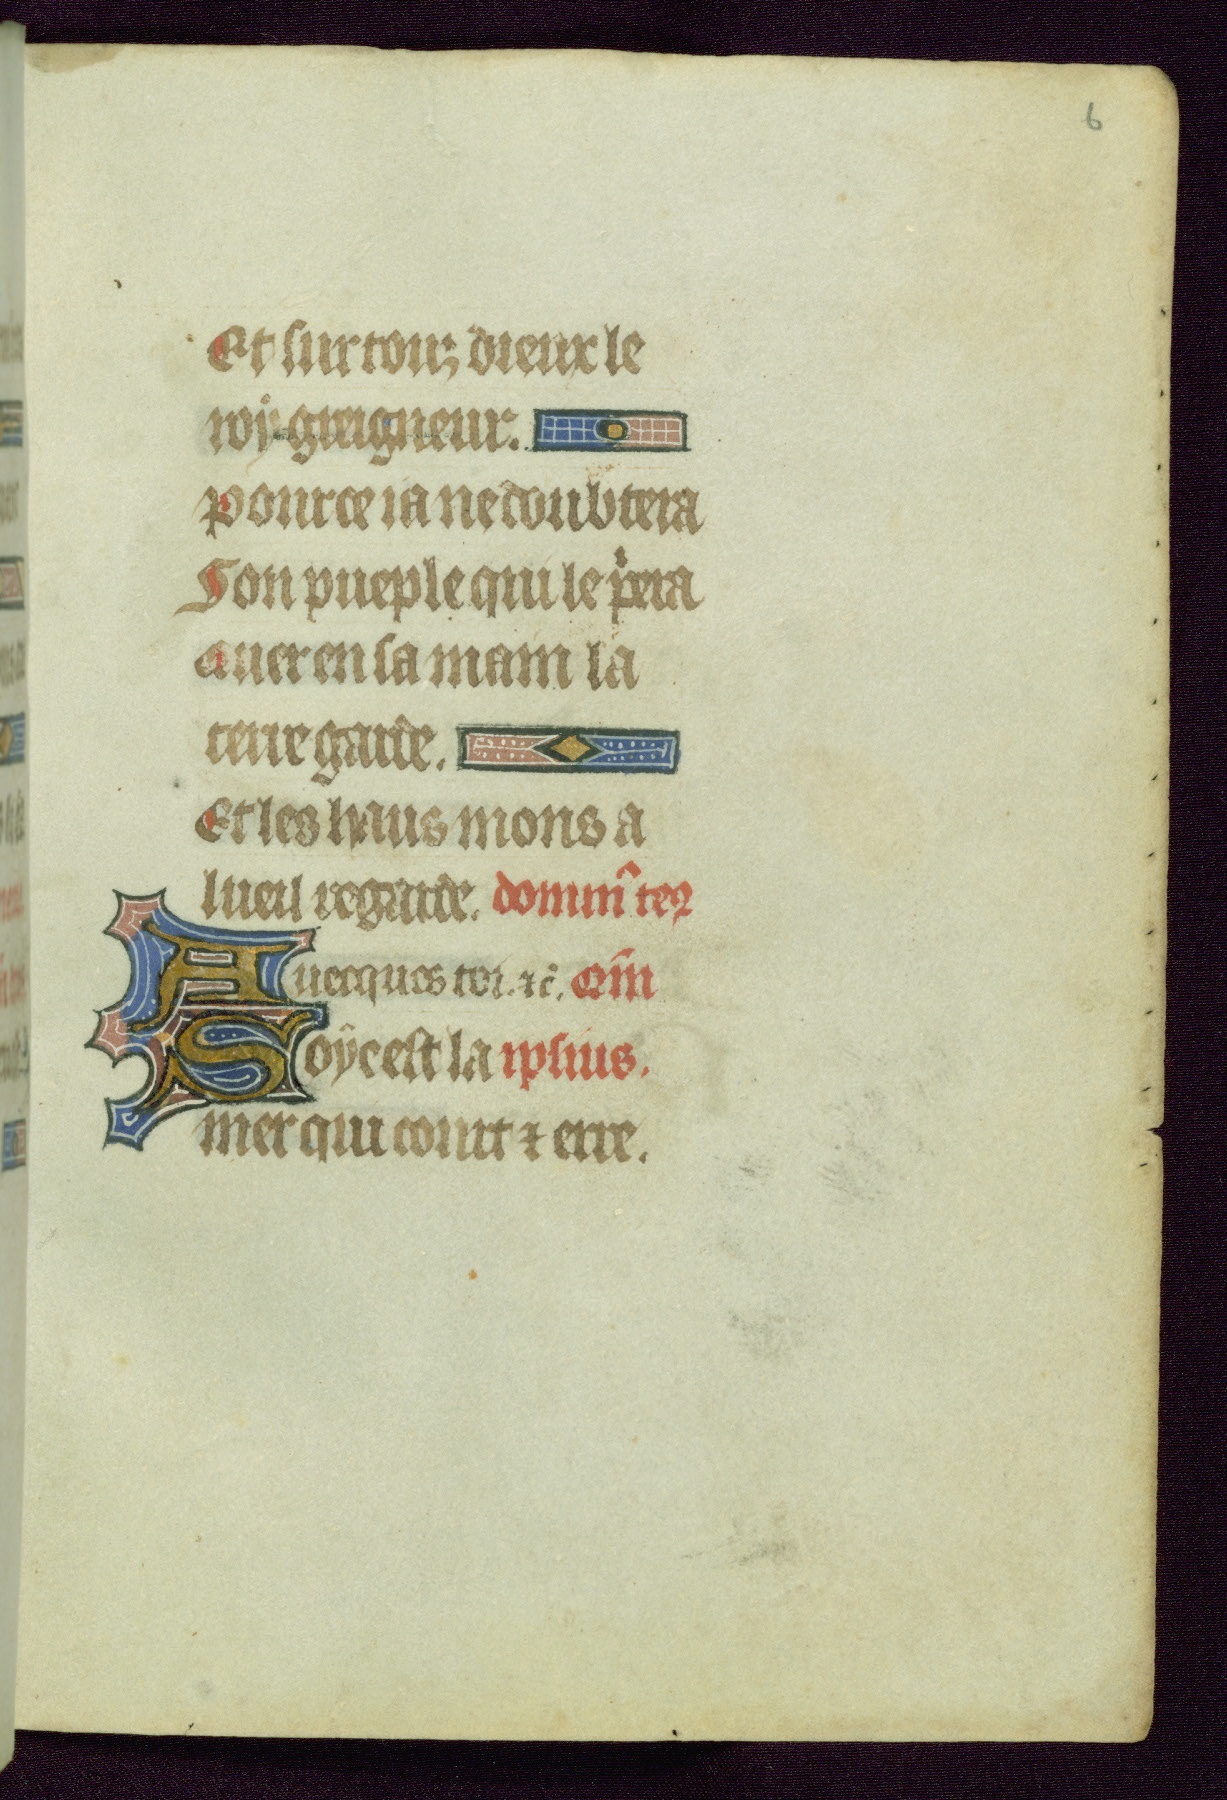 6
Et sur touz dieux le
roy greigneur.
Pource ia ne doubtera
Son pueple qui le p̾era
Auer en sa main la
terre garde.
Et les haus mons a
lueil regarde. domin̄ teꝝ
Auecques toi. ⁊c̄. Qm̄
Soy cest la ipsius.
mer qui court ⁊ erre.